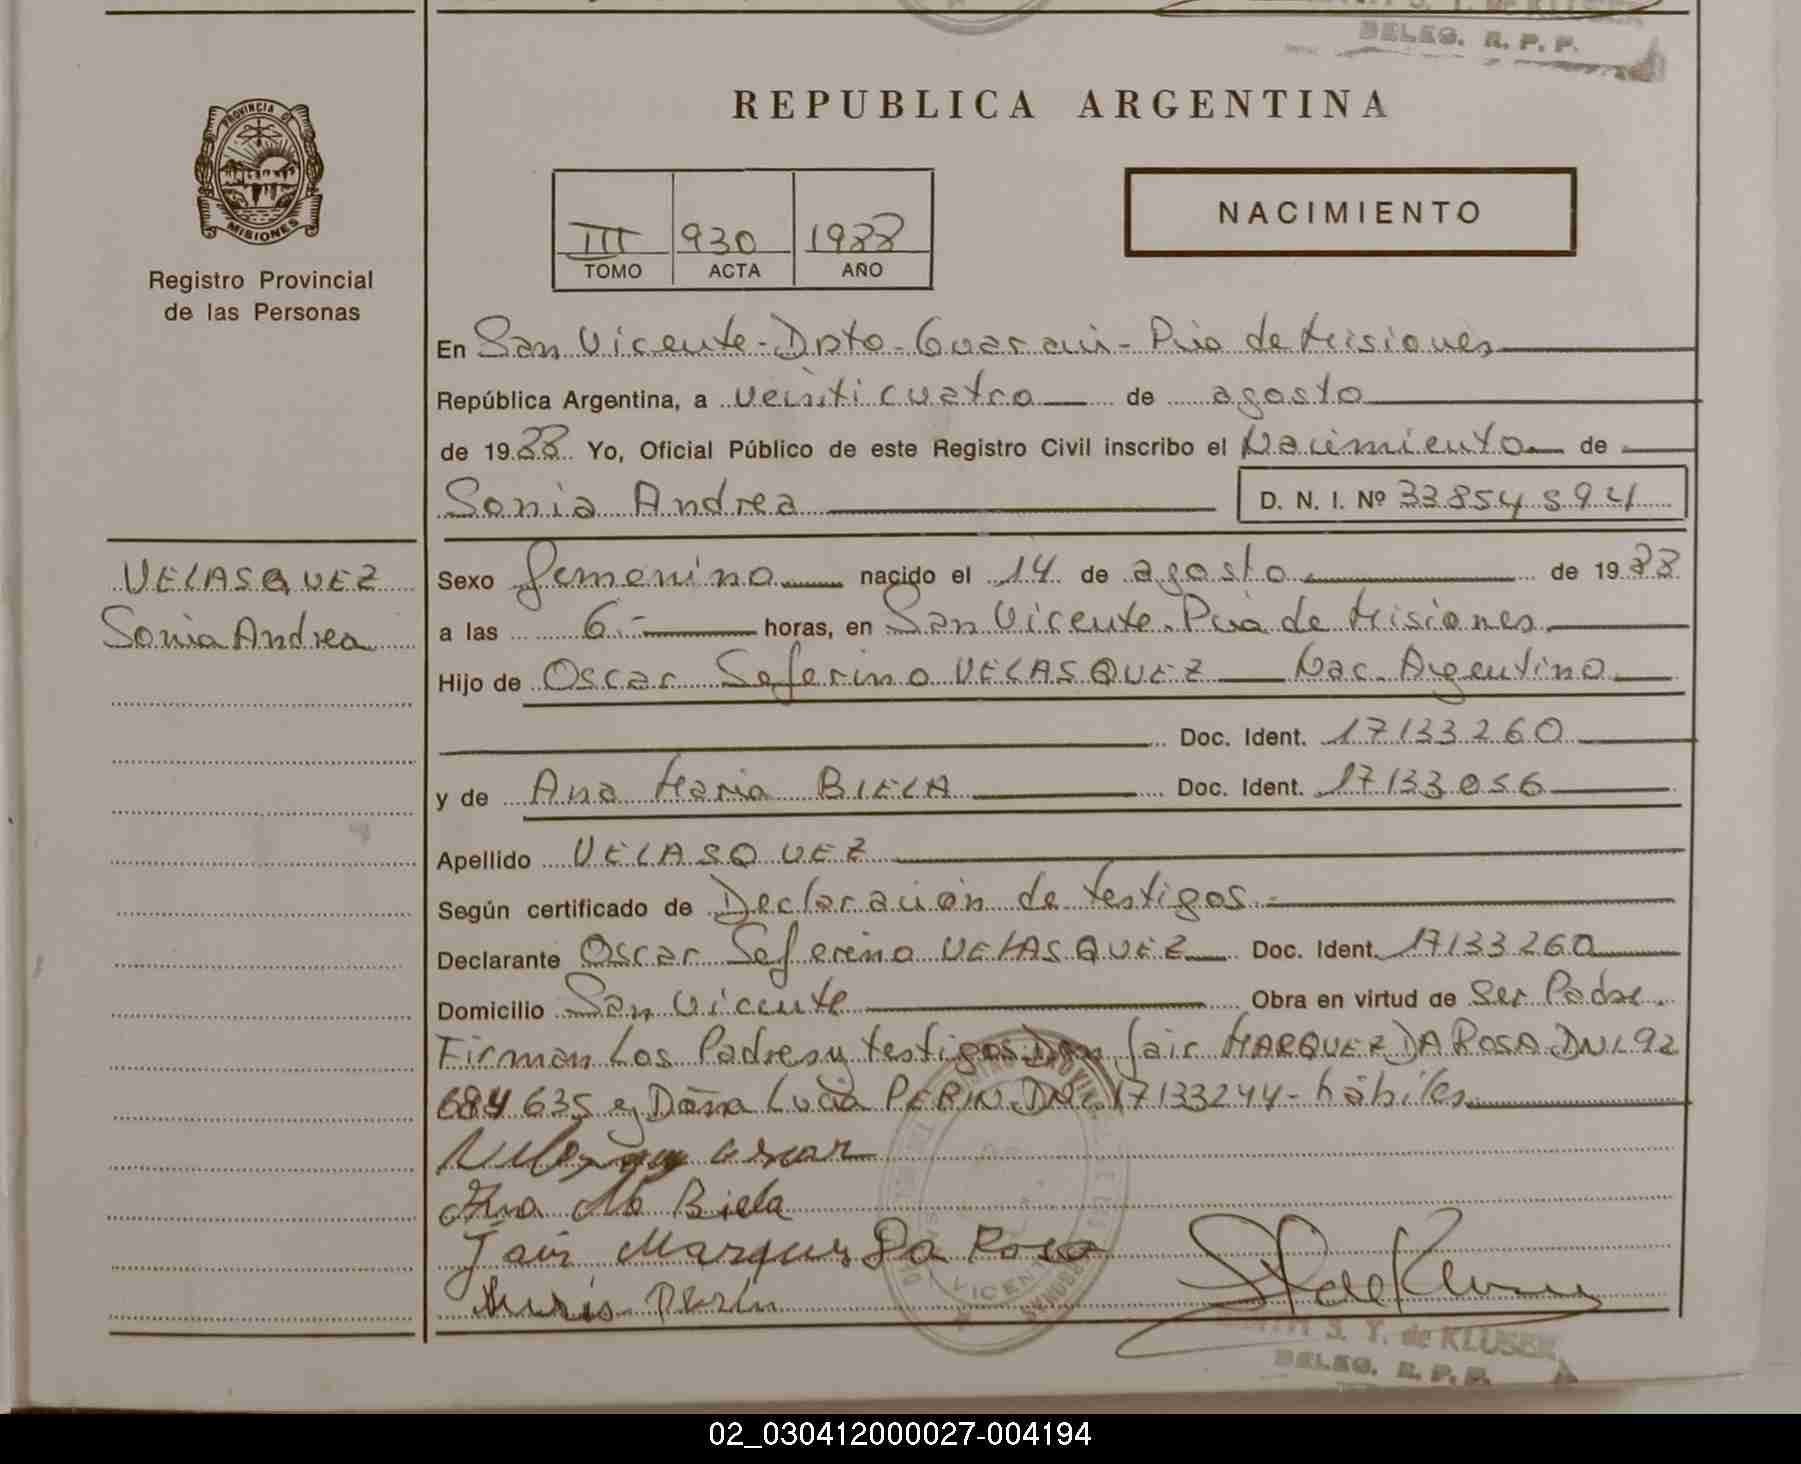 DELEG. R. P. P.
PROVINCIA DE
MISIONES
Registro Provincial
de las Personas
REPUBLICA ARGENTINA
III 930 1988
TOMO ACTA AÑO
NACIMIENTO
En San Vicente - Dpto - Guarani - Pcia de Misiones
República Argentina, a veinticuatro de agosto
de 1988 Yo, Oficial Público de este Registro Civil inscribo el Nacimiento de
Sonia Andrea D. N. I. Nº 33854594
VELASQUEZ
Sonia Andrea
Sexo femenino nacido el 14 de agosto de 1988
a las 6.- horas, en San Vicente. Pcia de Misiones
Hijo de Oscar Seferino VELASQUEZ Nac. Argentino
Doc. Ident. 17133260
y de Ana Maria BIELA Doc. Ident. 17133056
Apellido VELASQUEZ
Según certificado de Declaración de testigos.-
Declarante Oscar Seferino VELASQUEZ Doc. Ident. 17133260
Domicilio San Vicente Obra en virtud de Ser Padre.
Firman Los Padres y testigos Don Jair MARQUEZ DA ROSA DNI. 92
684 635 y Doña Lucia PERIN DNI. 17133244 - hábiles
Ana Ma Biela
Jair Marques Da Rosa
Perin
S. Y. de KLUSER
DELEG. R. P. P.
02_030412000027-004194